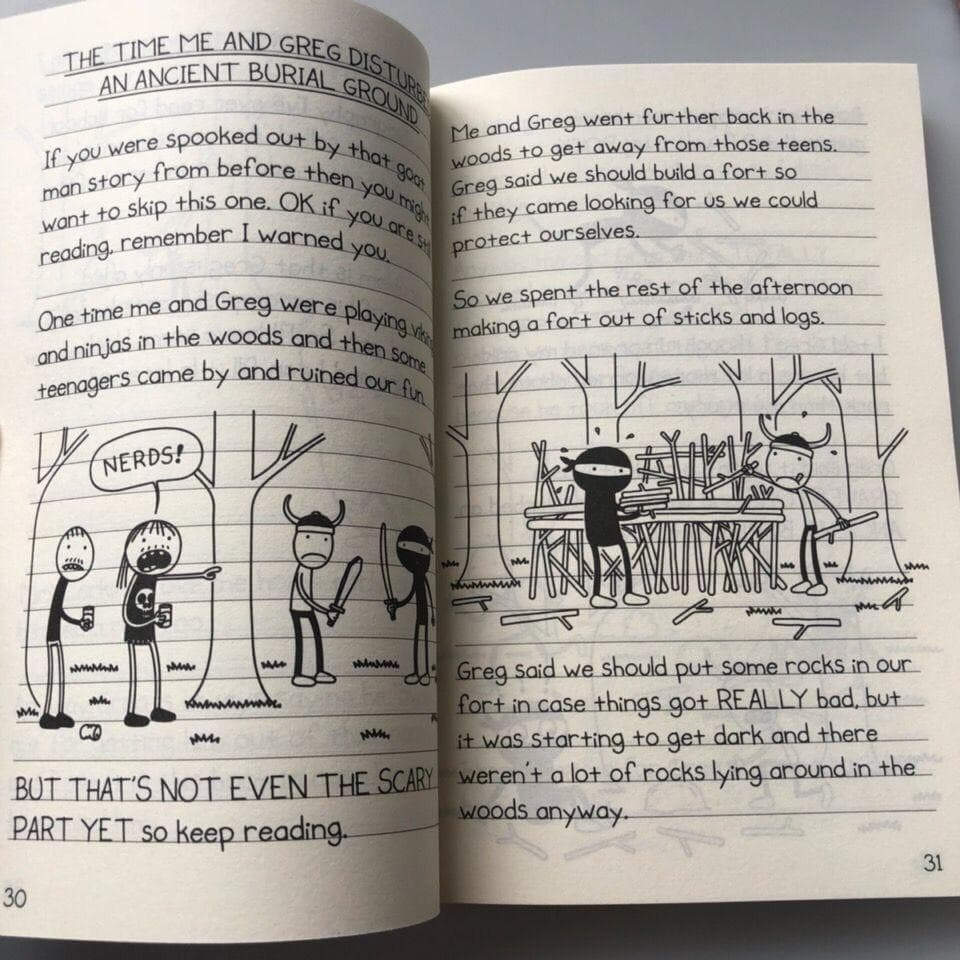 THE TIME ME AND GREG DISTURBE
AN ANCIENT BURIAL GROUND
If you were spooked out by that goat
man story from before then you might
want to skip this one. OK if you are still
reading, remember I warned you.
One time me and Greg were playing
and ninjas in the woods and then some
teenagers came by and ruined our fun.
NERDS!
BUT THAT'S NOT EVEN THE SCARY
PART YET so keep reading.
30
Me and Greg went further back in the
woods to get away from those teens.
Greg said we should build a fort so
if they came looking for us we could
protect ourselves.
So we spent the rest of the afternoon
making a fort out of sticks and logs.
Greg said we should put some rocks in our
fort in case things got REALLY bad, but
it was starting to get dark and there
weren't a lot of rocks lying around in the
woods anyway.
31